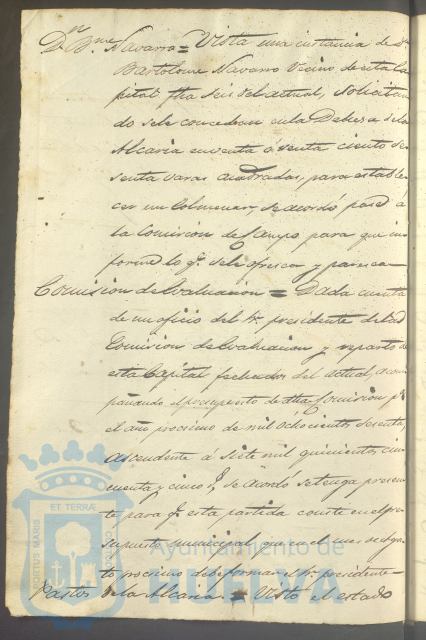 Dn. Bme. Navarro = Vista una instancia de Dn.
Bartolome Navarro Vecino de esta Ca
pital fha seis del actual, solicitan
do se le concedan en la Dehesa de la
Alcaria en venta ó renta ciento se
senta varas cuadradas, para estable
cer un Colmenar, se acordó pase á
la Comision de Campo para que in
forme lo q. se le ofrezca y parezca
Comision de Evaluacion = Dada cuenta
de un oficio del Sr. presidente de la
Comision de Evaluacion y reparto de
esta Capital fecha dos del actual, acom
pañando el presupuesto de dha Comision pa
el año procsimo de mil ochocientos sesenta,
ascendente á siete mil quinientos cin
cuenta y cinco r, se acordó se tenga presen
te para q. esta partida conste en el pre
supuesto municipal que en el mes de Ag
to procsimo debe formar el Sr. presidente
Pastos de la Alcaria = Visto el estado
PORTUS MARIS ET TERRÆ CUSTODIA
Ayuntamiento de
HUELVA